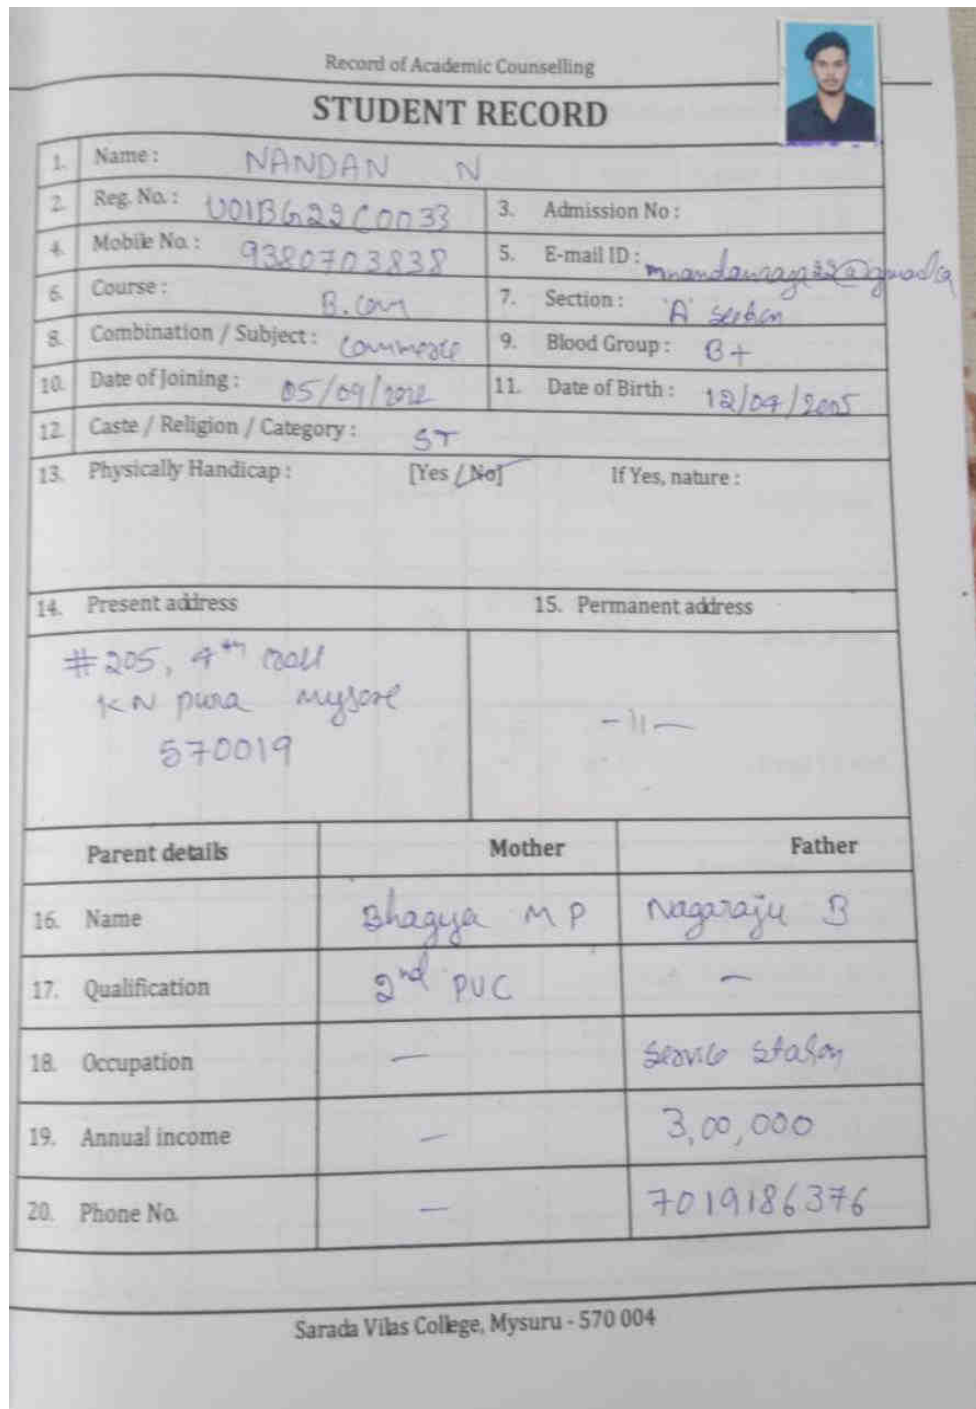 Record of Academic Counselling
STUDENT RECORD
1. Name : NANDAN N
2. Reg. No. : U01BG22C0033 3. Admission No :
4. Mobile No. : 9380703838 5. E-mail ID :
6. Course : B.Com 7. Section : 'A' Section
8. Combination / Subject : Commerce 9. Blood Group : B+
10. Date of Joining : 05/09/2022 11. Date of Birth : 12/04/2005
12. Caste / Religion / Category : ST
13. Physically Handicap : [Yes / No] If Yes, nature :
14. Present address 15. Permanent address
#205, 4th
KN pura mysore -11-
570019
Parent details Mother Father
16. Name Bhagya M P Nagaraju B
17. Qualification 2nd PUC -
18. Occupation - Service Station
19. Annual income - 3,00,000
20. Phone No. - 7019186376
Sarada Vilas College, Mysuru - 570 004